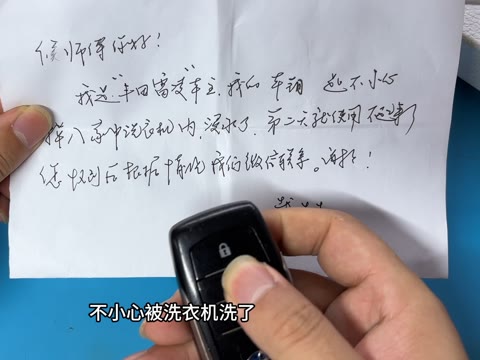 侯师傅你好！
我是"丰田雷凌"车主，我的车钥匙不小心
掉入家中洗衣机内，浸水了，第二天就使用不了
您收到后根据情况我们微信联系。谢谢！
不小心被洗衣机洗了